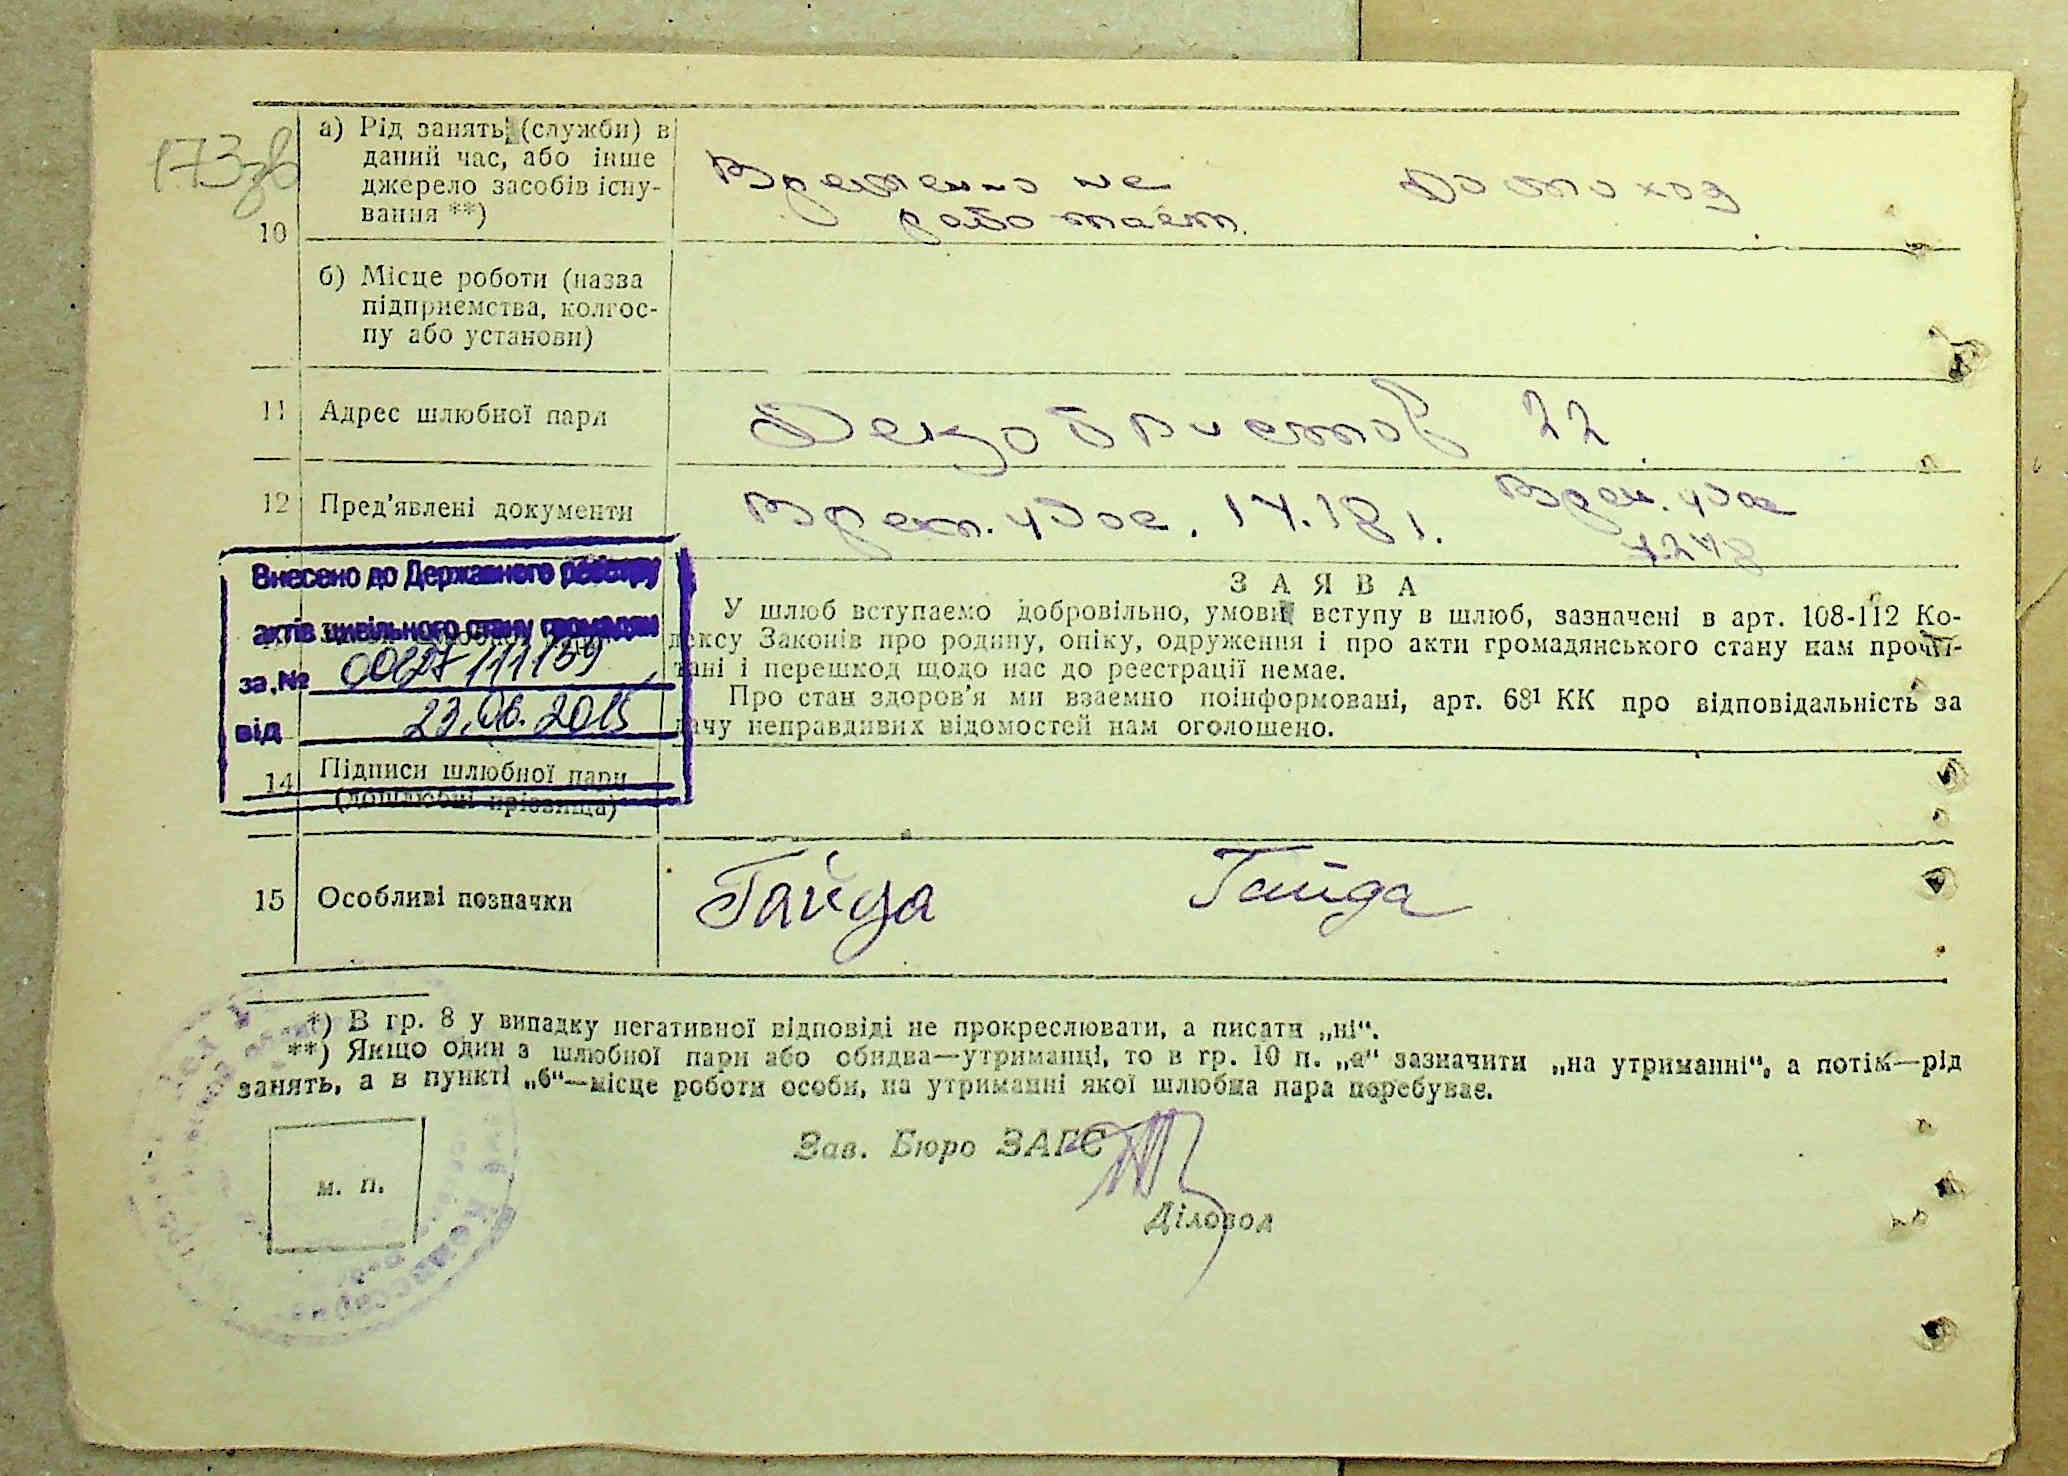 173зв
10
а) Рід занять (служби) в
даний час, або інше
джерело засобів існу-
вання **)
Временно не
работает.
Домохоз
б) Місце роботи (назва
підприємства, колгос-
пу або установи)
11 Адрес шлюбної пари
Декабристов 22
12 Пред’явлені документи
Врем. удос. 14.181.
Врем. удос
Внесено до Державного реєстру
актів цивільного стану громадян
за №
від 23.06.2015
З А Я В А
У шлюб вступаємо добровільно, умови вступу в шлюб, зазначені в арт. 108-112 Ко-
дексу Законів про родину, опіку, одруження і про акти громадянського стану нам прочи-
тані і перешкод щодо нас до реєстрації немає.
Про стан здоров’я ми взаємно поінформовані, арт. 68¹ КК про відповідальність за
дачу неправдивих відомостей нам оголошено.
14 Підписи шлюбної пари
(дошлюбні прізвища)
15 Особливі позначки
Гайда Гайда
*) В гр. 8 у випадку негативної відповіді не прокреслювати, а писати „ні“.
**) Якщо один з шлюбної пари або обидва—утриманці, то в гр. 10 п. „а“ зазначити „на утриманні“, а потім—рід
занять, а в пункті „б“—місце роботи особи, на утриманні якої шлюбна пара перебуває.
м. п.
Зав. Бюро ЗАГС
Діловод